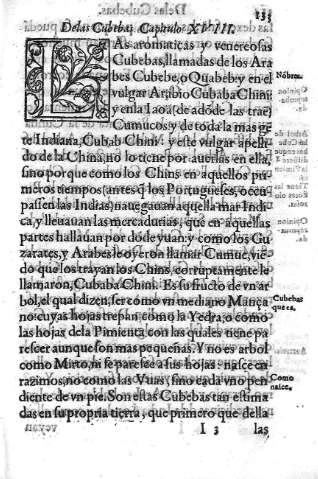 133
De las Cubebas, Capitulo XVIII.
LAS aromaticas y venereosas
Cubebas, llamadas de los Ara
bes Cubebe, o Quabeb, y en el
vulgar Arabio Cubaba Chini:
y en la Iaoa (de adõde las trae)
Cumucos y de toda la mas gẽ
te Indiana, Cubab Chini: y este vulgar apelli-
do de la China, no lo tiene por auerlas en ella,
sino porque como los Chins en aquellos pri-
meros tiempos (antes q̃ los Portugueses, occu
passen las Indias) nauegauan aquella mar Indi-
ca, y lleuauan las mercadurias, que en aquellas
partes hallauan por dõde yuan: y como los Gu
zarates, y Arabes le oyeron llamar Cumuc, viẽ
do que los trayan los Chins, corruptamente le
llamaron, Cubaba Chini. Es su fructo de vn ar
bol, el qual dizen, ser como vn mediano Mança
no: cuyas hojas trepan como la Yedra, o como
las hojas de la Pimienta con las quales tiene pa
rescer aunque son mas pequeñas. Y no es arbol
como Mirto, ni se paresce a sus hojas: nasce en
razimos, no como las Vuas, sino cada vno pen
diente de vn pie. Son estas Cubebas tan estima
das en su propria tierra, que primero que della
I 3 las
Nõbre.
Cubebas
que es.
Como
nasce.